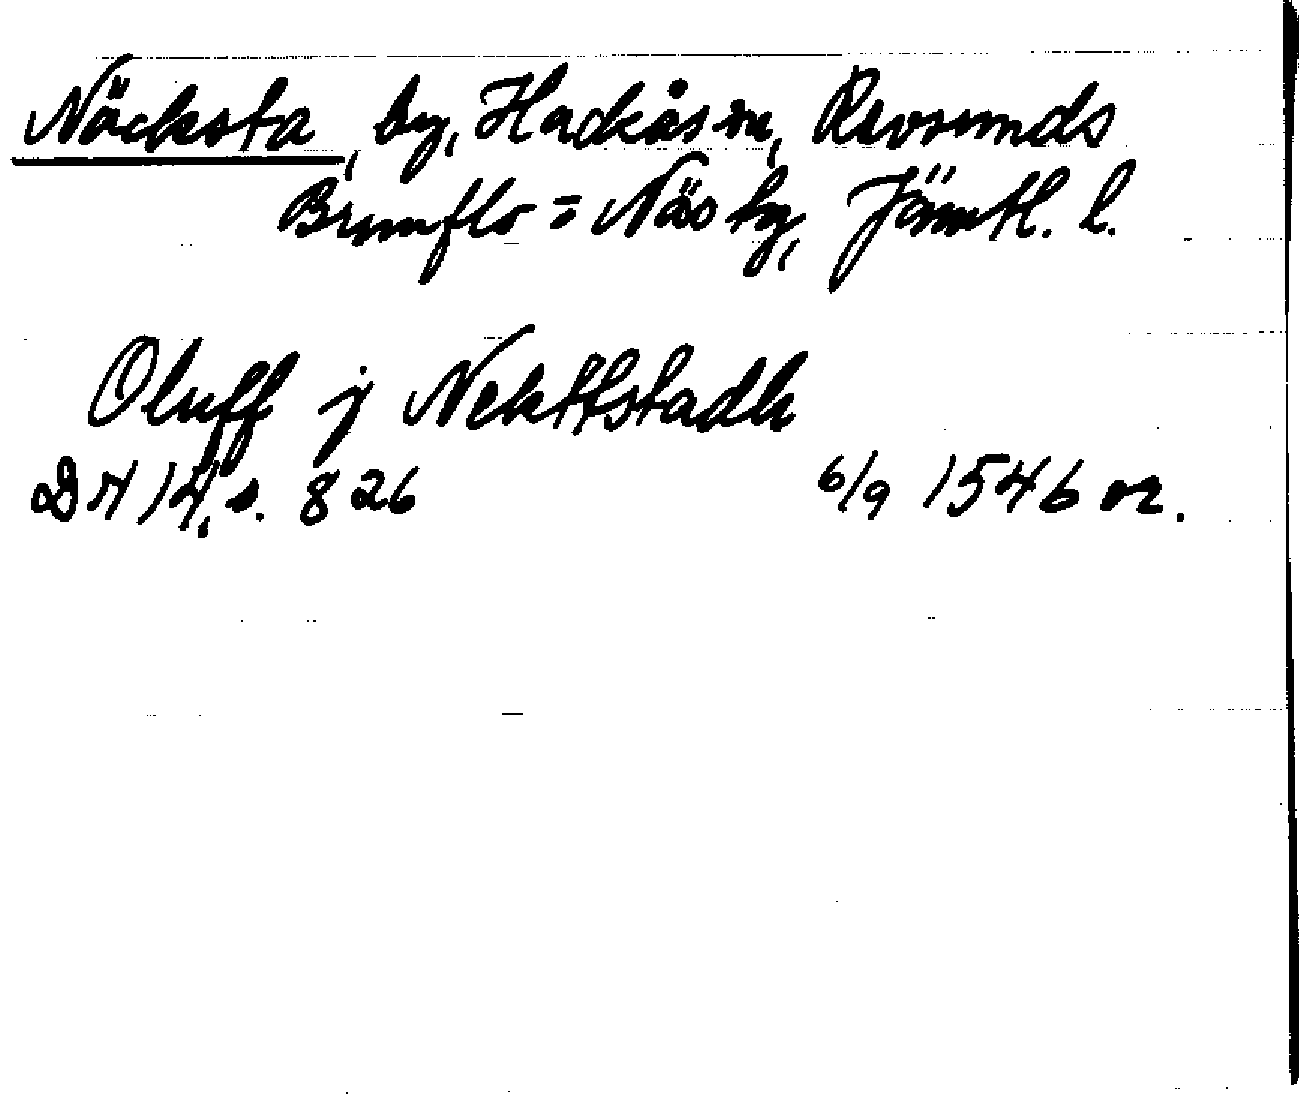 Näcksta, by, Hackås sn, Revsunds
Brunflo = Näs tg, Jämtl. l.
Oluff j Nekttstadh
DN 14, s. 826 6/9 1546 or.